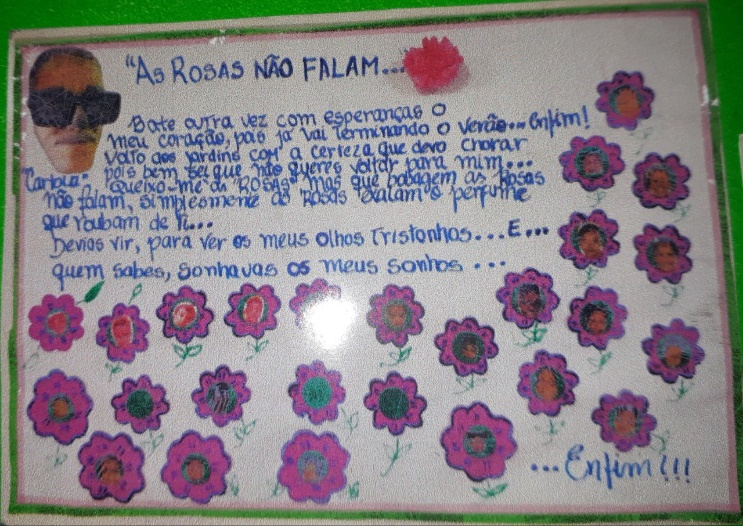 "As ROSAS NÃO FALAM...
Bate outra vez com esperanças o
meu coração, pois já vai terminando o verão... Enfim!
Volto aos jardins com a certeza que devo chorar
pois bem sei que não queres voltar para mim...
"Cartola" Queixo-me às ROSAS" mas que bobagem as Rosas
não falam, simplesmente as rosas exalam o perfume
que roubam de ti...
Devias vir, para ver os meus olhos tristonhos... E...
quem sabes, sonhavas os meus sonhos ...
... Enfim!!!